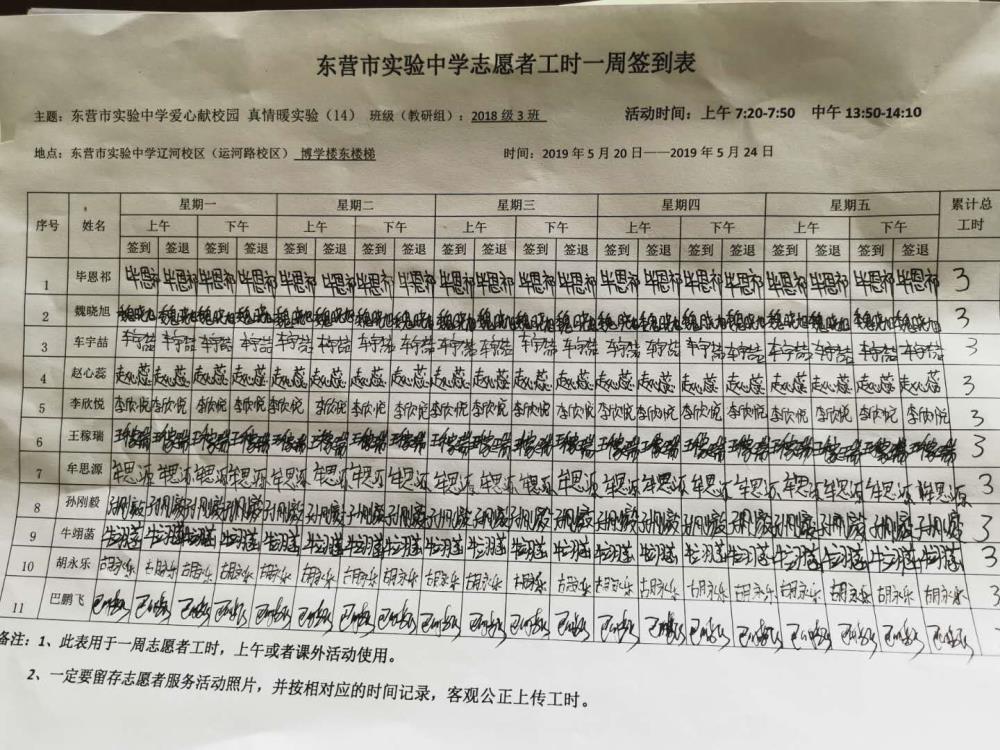 东营市实验中学志愿者工时一周签到表
主题：东营市实验中学爱心献校园 真情暖实验（14） 班级（教研组）：2018 级 3 班 活动时间：上午 7:20-7:50 中午 13:50-14:10
地点：东营市实验中学辽河校区（运河路校区） 博学楼东楼梯 时间：2019 年 5 月 20 日——2019 年 5 月 24 日
序号 姓名 星期一 星期二 星期三 星期四 星期五 累计总工时
上午 下午 上午 下午 上午 下午 上午 下午 上午 下午
签到 签退 签到 签退 签到 签退 签到 签退 签到 签退 签到 签退 签到 签退 签到 签退 签到 签退 签到 签退
1 毕恩祁 毕恩祁 毕恩祁 毕恩祁 毕恩祁 毕恩祁 毕恩祁 毕恩祁 毕恩祁 毕恩祁 毕恩祁 毕恩祁 毕恩祁 毕恩祁 毕恩祁 毕恩祁 毕恩祁 毕恩祁 毕恩祁 毕恩祁 毕恩祁 3
2 魏晓旭 魏晓旭 魏晓旭 魏晓旭 魏晓旭 魏晓旭 魏晓旭 魏晓旭 魏晓旭 魏晓旭 魏晓旭 魏晓旭 魏晓旭 魏晓旭 魏晓旭 魏晓旭 魏晓旭 魏晓旭 魏晓旭 魏晓旭 魏晓旭 3
3 车宇喆 车宇喆 车宇喆 车宇喆 车宇喆 车宇喆 车宇喆 车宇喆 车宇喆 车宇喆 车宇喆 车宇喆 车宇喆 车宇喆 车宇喆 车宇喆 车宇喆 车宇喆 车宇喆 车宇喆 车宇喆 3
4 赵心蕊 赵心蕊 赵心蕊 赵心蕊 赵心蕊 赵心蕊 赵心蕊 赵心蕊 赵心蕊 赵心蕊 赵心蕊 赵心蕊 赵心蕊 赵心蕊 赵心蕊 赵心蕊 赵心蕊 赵心蕊 赵心蕊 赵心蕊 赵心蕊 3
5 李欣悦 李欣悦 李欣悦 李欣悦 李欣悦 李欣悦 李欣悦 李欣悦 李欣悦 李欣悦 李欣悦 李欣悦 李欣悦 李欣悦 李欣悦 李欣悦 李欣悦 李欣悦 李欣悦 李欣悦 李欣悦 3
6 王稼瑞 王稼瑞 王稼瑞 王稼瑞 王稼瑞 王稼瑞 王稼瑞 王稼瑞 王稼瑞 王稼瑞 王稼瑞 王稼瑞 王稼瑞 王稼瑞 王稼瑞 王稼瑞 王稼瑞 王稼瑞 王稼瑞 王稼瑞 王稼瑞 3
7 牟思源 牟思源 牟思源 牟思源 牟思源 牟思源 牟思源 牟思源 牟思源 牟思源 牟思源 牟思源 牟思源 牟思源 牟思源 牟思源 牟思源 牟思源 牟思源 牟思源 牟思源 3
8 孙刚毅 孙刚毅 孙刚毅 孙刚毅 孙刚毅 孙刚毅 孙刚毅 孙刚毅 孙刚毅 孙刚毅 孙刚毅 孙刚毅 孙刚毅 孙刚毅 孙刚毅 孙刚毅 孙刚毅 孙刚毅 孙刚毅 孙刚毅 孙刚毅 3
9 牛翊菡 牛翊菡 牛翊菡 牛翊菡 牛翊菡 牛翊菡 牛翊菡 牛翊菡 牛翊菡 牛翊菡 牛翊菡 牛翊菡 牛翊菡 牛翊菡 牛翊菡 牛翊菡 牛翊菡 牛翊菡 牛翊菡 牛翊菡 牛翊菡 3
10 胡永乐 胡永乐 胡永乐 胡永乐 胡永乐 胡永乐 胡永乐 胡永乐 胡永乐 胡永乐 胡永乐 胡永乐 胡永乐 胡永乐 胡永乐 胡永乐 胡永乐 胡永乐 胡永乐 胡永乐 胡永乐 3
11 巴鹏飞 巴鹏飞 巴鹏飞 巴鹏飞 巴鹏飞 巴鹏飞 巴鹏飞 巴鹏飞 巴鹏飞 巴鹏飞 巴鹏飞 巴鹏飞 巴鹏飞 巴鹏飞 巴鹏飞 巴鹏飞 巴鹏飞 巴鹏飞 巴鹏飞 巴鹏飞 巴鹏飞
备注：1、此表用于一周志愿者工时，上午或者课外活动使用。
2、一定要留存志愿者服务活动照片，并按相对应的时间记录，客观公正上传工时。